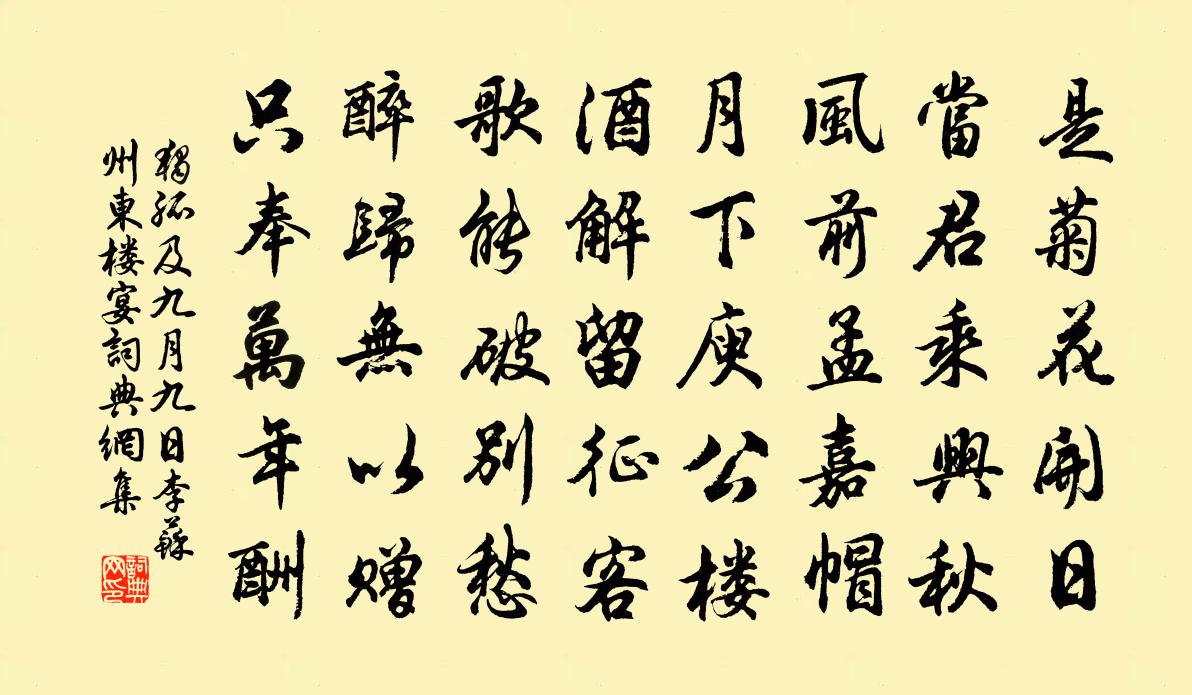 是菊花開日
當君乘興秋
風前孟嘉帽
月下庾公楼
酒解留征客
歌能破別愁
醉歸無以赠
只奉萬年酬
獨孤及九月九日李蘇
州東楼宴詞典網集
詞典
网印